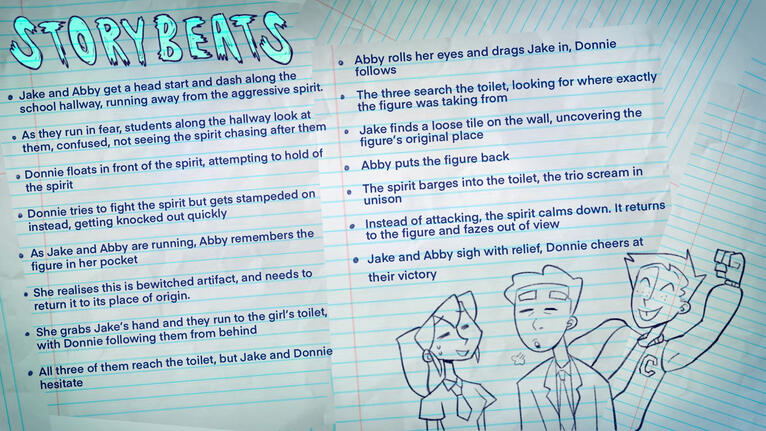 STORY BEATS
• Jake and Abby get a head start and dash along the
school hallway, running away from the aggressive spirit.
• As they run in fear, students along the hallway look at
them, confused, not seeing the spirit chasing after them
• Donnie floats in front of the spirit, attempting to hold of
the spirit
• Donnie tries to fight the spirit but gets stampeded on
instead, getting knocked out quickly
• As Jake and Abby are running, Abby remembers the
figure in her pocket
• She realises this is bewitched artifact, and needs to
return it to its place of origin.
• She grabs Jake's hand and they run to the girl's toilet,
with Donnie following them from behind
• All three of them reach the toilet, but Jake and Donnie
hesitate
• Abby rolls her eyes and drags Jake in, Donnie
follows
• The three search the toilet, looking for where exactly
the figure was taking from
• Jake finds a loose tile on the wall, uncovering the
figure's original place
• Abby puts the figure back
• The spirit barges into the toilet, the trio scream in
unison
• Instead of attacking, the spirit calms down. It returns
to the figure and fazes out of view
• Jake and Abby sigh with relief, Donnie cheers at
their victory
C